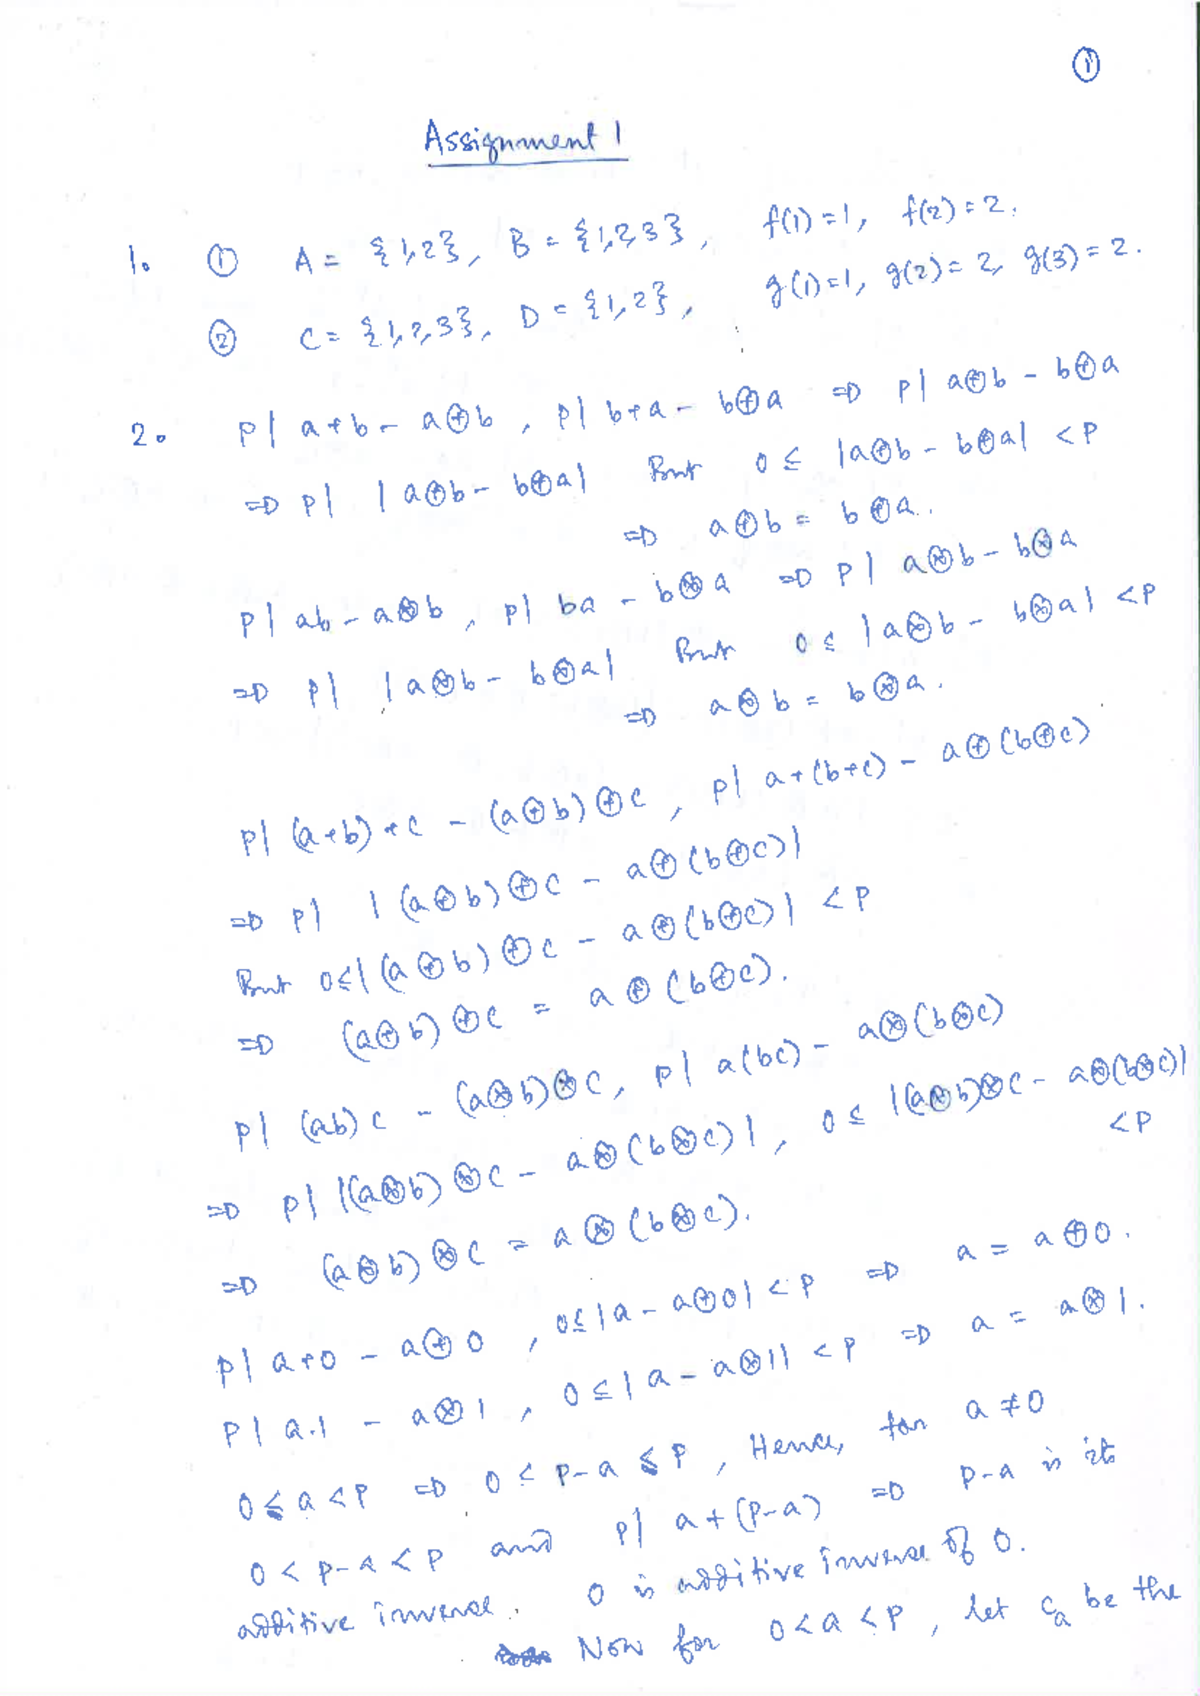 ①
Assignment 1
1. ① A = {1,2}, B = {1,2,3}, f(1)=1, f(2)=2.
② C = {1,2,3}, D = {1,2}, g(1)=1, g(2)=2, g(3)=2.
2. p| a+b - a⊕b, p| b+a - b⊕a ⇒ p| a⊕b - b⊕a
⇒ p| |a⊕b - b⊕a| But 0 ≤ |a⊕b - b⊕a| < p
⇒ a⊕b = b⊕a.
p| ab - a⊗b, p| ba - b⊗a ⇒ p| a⊗b - b⊗a
⇒ p| |a⊗b - b⊗a| But 0 ≤ |a⊗b - b⊗a| < p
⇒ a⊗b = b⊗a.
p| (a+b)+c - (a⊕b)⊕c, p| a+(b+c) - a⊕(b⊕c)
⇒ p| |(a⊕b)⊕c - a⊕(b⊕c)|
But 0≤|(a⊕b)⊕c - a⊕(b⊕c)| < p
⇒ (a⊕b)⊕c = a⊕(b⊕c).
p| (ab)c - (a⊗b)⊗c, p| a(bc) - a⊗(b⊗c)
⇒ p| |(a⊗b)⊗c - a⊗(b⊗c)|, 0 ≤ |(a⊗b)⊗c - a⊗(b⊗c)|
< p
⇒ (a⊗b)⊗c = a⊗(b⊗c).
p| a+0 - a⊕0, 0≤|a - a⊕0| < p ⇒ a = a⊕0.
p| a.1 - a⊗1, 0≤|a - a⊗1| < p ⇒ a = a⊗1.
0≤a<p ⇒ 0 < p-a ≤ p, Hence, for a≠0
0 < p-a < p and p| a+(p-a) ⇒ p-a is its
additive inverse. 0 is additive inverse of 0.
Now for 0<a<p, let cₐ be the